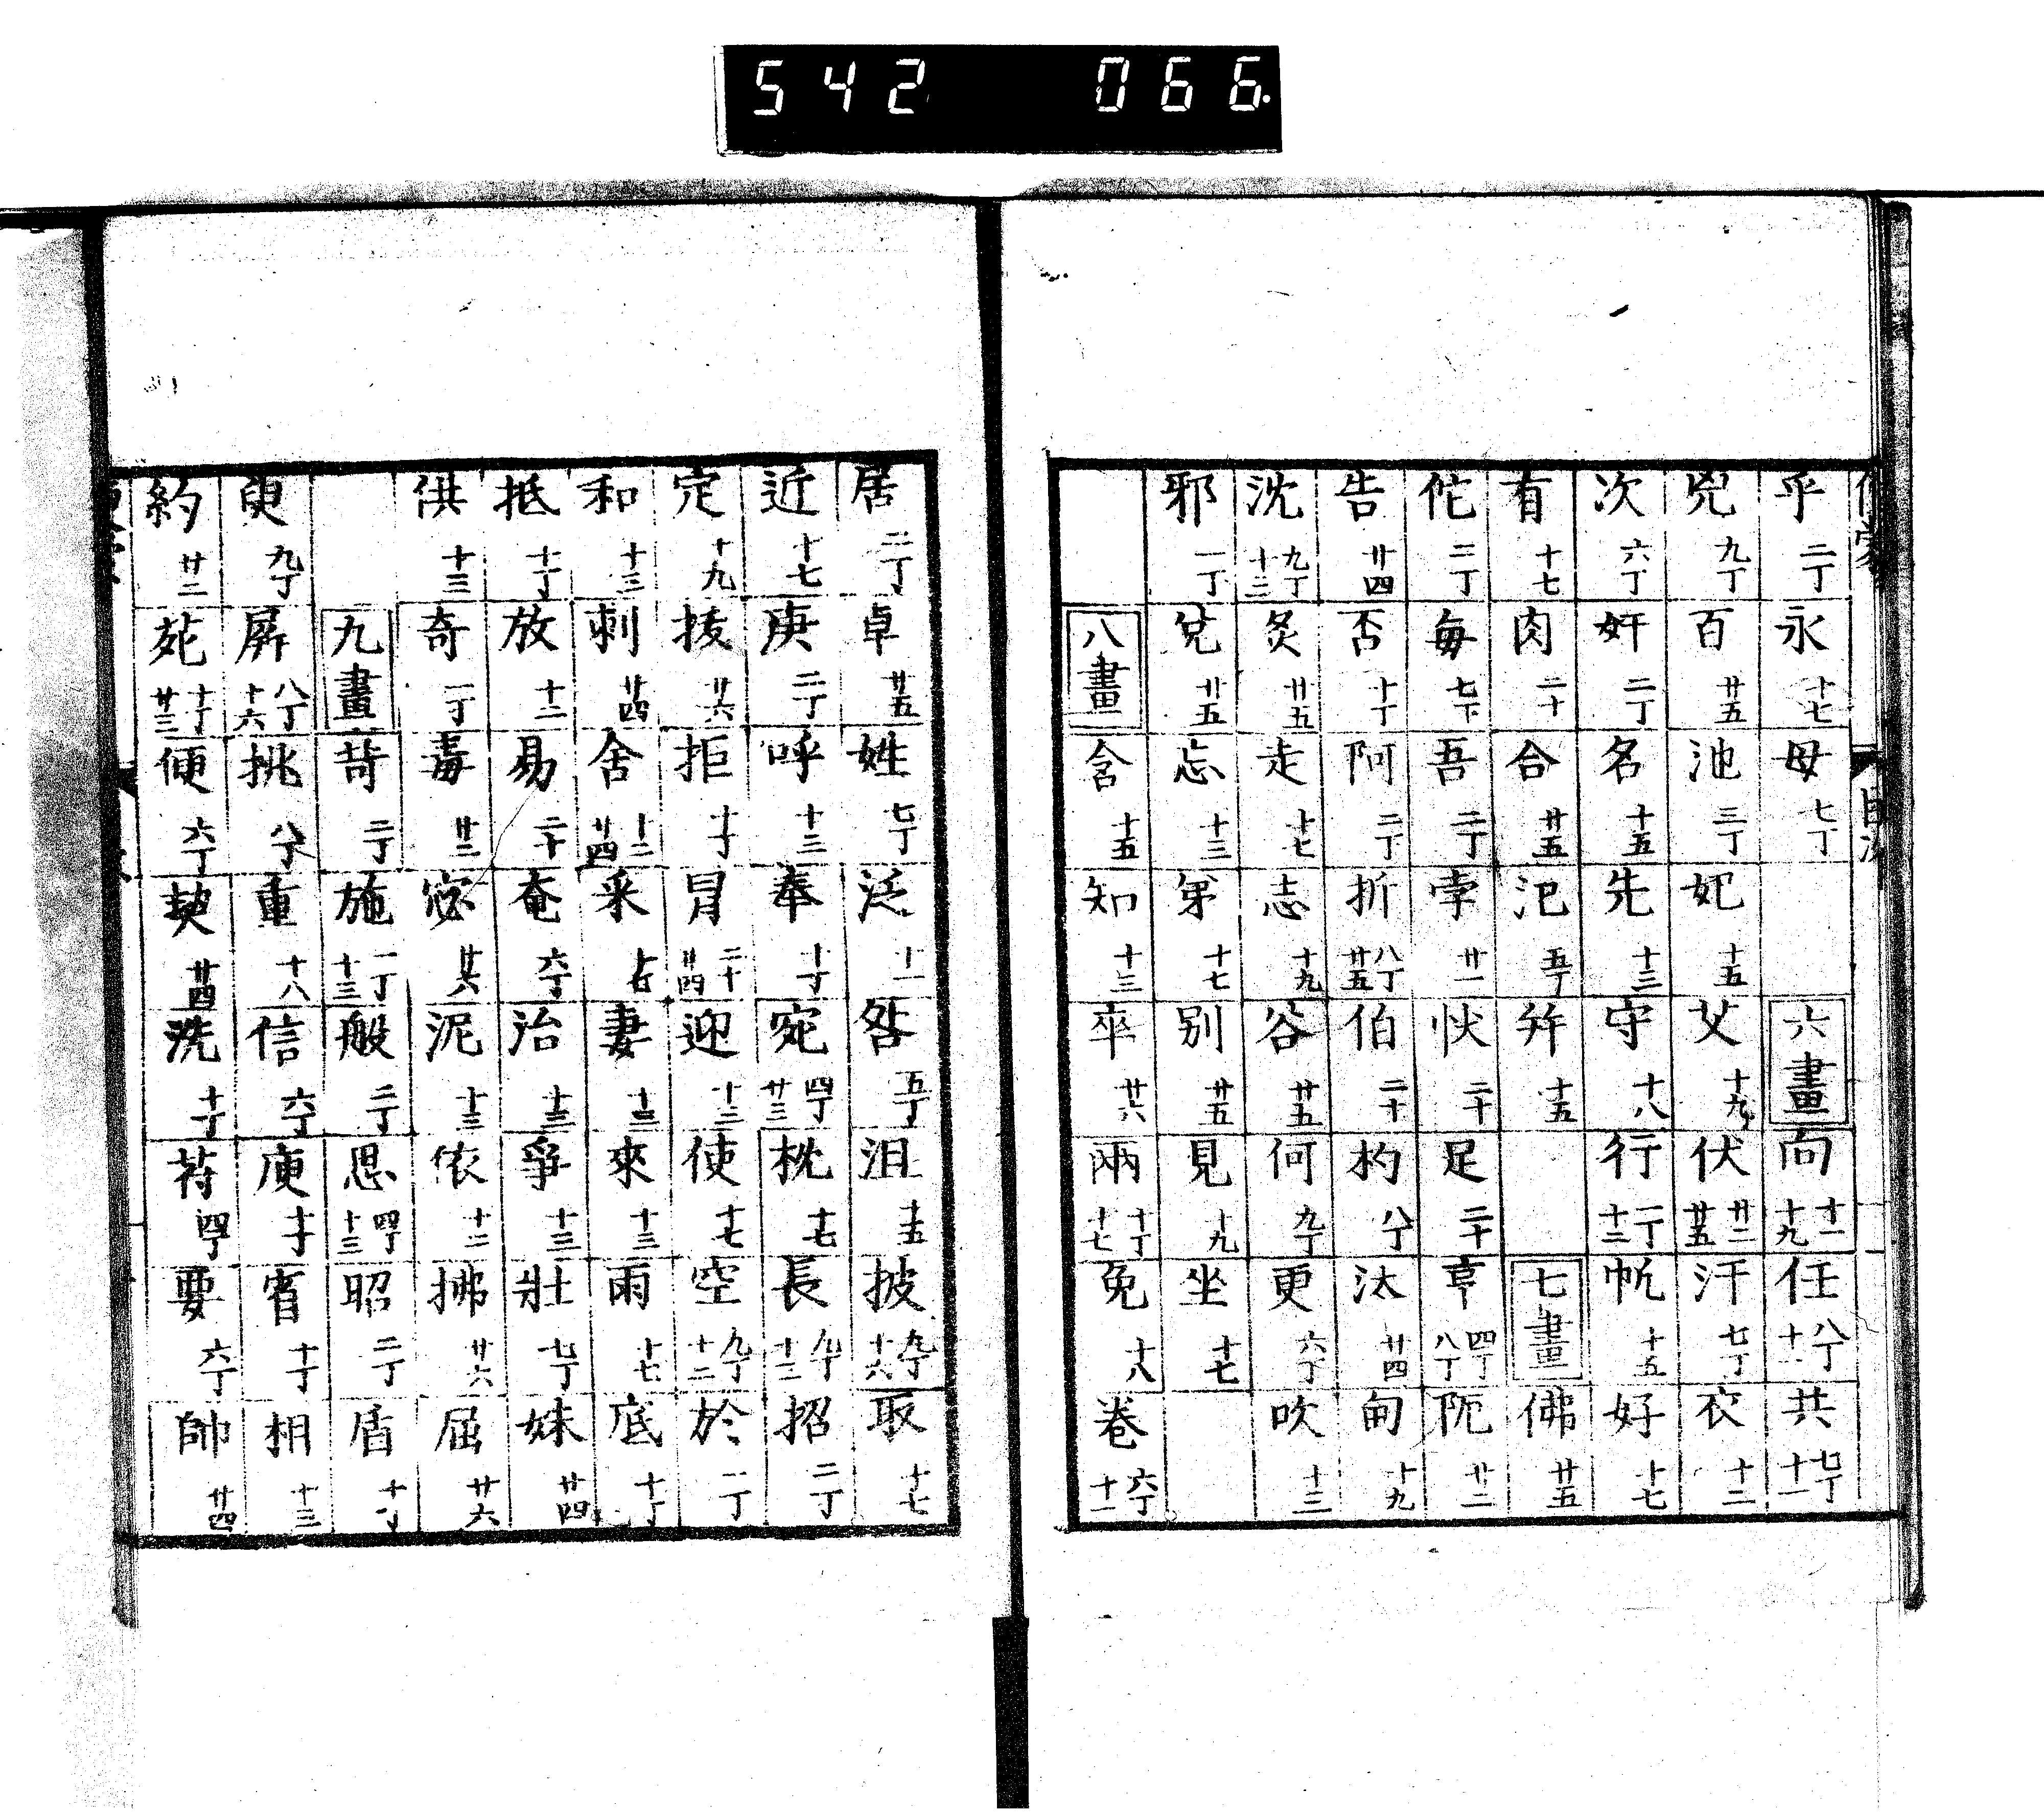 542 066.
乎 二丁 永 十七 母 七丁 六畫 向 十一 十九 任 八丁 十一 共 七丁 十一
兕 九丁 百 廿五 池 三丁 妃 十五 艾 十九 伏 廿一 廿五 汗 七丁 衣 十二
次 六丁 奸 二丁 名 十五 先 十三 守 十八 行 一丁 十三 帆 十五 好 十七
有 十七 肉 二十 合 廿五 汜 五丁 并 十五 七畫 佛 廿五
佗 三丁 每 七下 吾 二丁 孛 廿一 忕 二十 足 二十 亨 四丁 八丁 阨 廿二
告 廿四 否 十丁 阿 二丁 折 八丁 廿五 伯 二十 杓 八丁 汰 廿四 甸 十九
沈 九丁 十三 炙 廿五 走 十七 志 十九 谷 廿五 何 九丁 更 六丁 吹 十三
邪 一丁 兌 廿五 忘 十三 弟 十七 别 廿五 見 十九 坐 十七
八畫 含 十五 知 十三 卒 廿六 兩 十丁 十七 免 十八 卷 六丁 十一
居 二丁 卓 廿五 姓 七丁 泛 十一 咎 五丁 沮 十五 披 九丁 十六 取 十七
近 十七 庚 二丁 呼 十三 奉 十丁 宛 四丁 廿三 枕 十七 長 九丁 十三 招 二丁
定 十九 拔 廿六 拒 十丁 冒 二十 廿四 迎 十三 使 十七 空 九丁 十二 於 一丁
和 十三 刺 廿四 舍 十二 廿四 采 十七 妻 十三 來 十三 雨 十七 底 十丁
抵 十丁 放 十二 易 二十 奄 六丁 治 十三 爭 十三 壯 七丁 妹 廿四
供 十三 奇 一丁 毒 廿二 宓 廿六 泥 十三 依 十二 拂 廿六 屈 廿六
九畫 苛 二丁 施 一丁 十三 般 二丁 思 四丁 十三 昭 二丁 盾 十丁
臾 九丁 屏 八丁 十六 挑 八丁 重 十八 信 六丁 庾 十丁 省 十丁 相 十三
約 廿二 苑 十丁 廿三 便 六丁 契 廿四 洗 十丁 苻 四丁 要 六丁 帥 廿四